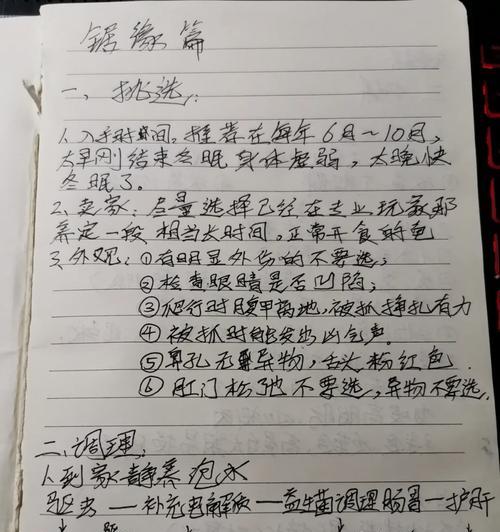 锯缘篇
一、挑选：
1、入手时间，推荐在每年6月～10月，
太早刚结束冬眠身体虚弱，太晚快
冬眠了。
2、卖家：尽量选择已经在专业玩家那
养定一段相当长时间，正常开食的龟
3、外观：①有明显外伤的不要选；
②检查眼睛是否凹陷；
③爬行时腹甲离地，被抓挣扎有力
④被抓时能发出凶气声。
⑤鼻孔无异物，舌头粉红色.
⑥肛门松弛不要选，异物不要选。
二、调理：
1、到家静养泡水
驱虫—补充电解液—益生菌调理肠胃—护肝